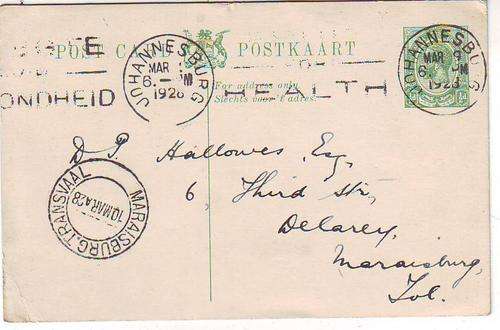 POST CARD POSTKAART
JOHANNESBURG
MAR
6 PM
1928
JOHANNESBURG
MAR
6 PM
1928
ONDHEID
HEALTH
For address only.
Slechts voor 't adres.
½d
D. P. Hallowes, Esq,
6, Third Str,
Delarey,
Maraisburg,
Tvl.
MARAISBURG, TRANSVAAL
10 MAR 28